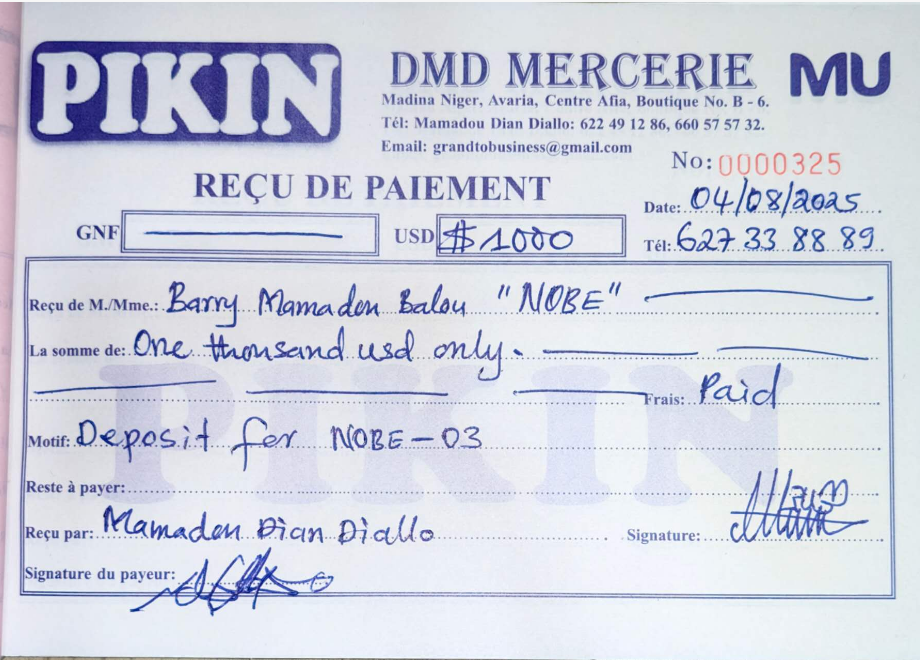 PIKIN
DMD MERCERIE
MU
Madina Niger, Avaria, Centre Afia, Boutique No. B - 6.
Tél: Mamadou Dian Diallo: 622 49 12 86, 660 57 57 32.
Email: grandtobusiness@gmail.com
No: 0000325
REÇU DE PAIEMENT
Date: 04/08/2025
GNF
USD $1000
Tél: 627 33 88 89
Reçu de M./Mme.: Barry Mamadou Balou "NOBE"
La somme de: One thousand usd only.
Frais: Paid
PIKIN
Motif: Deposit for NOBE-03
Reste à payer:
Reçu par: Mamadou Dian Diallo
Signature:
Signature du payeur: